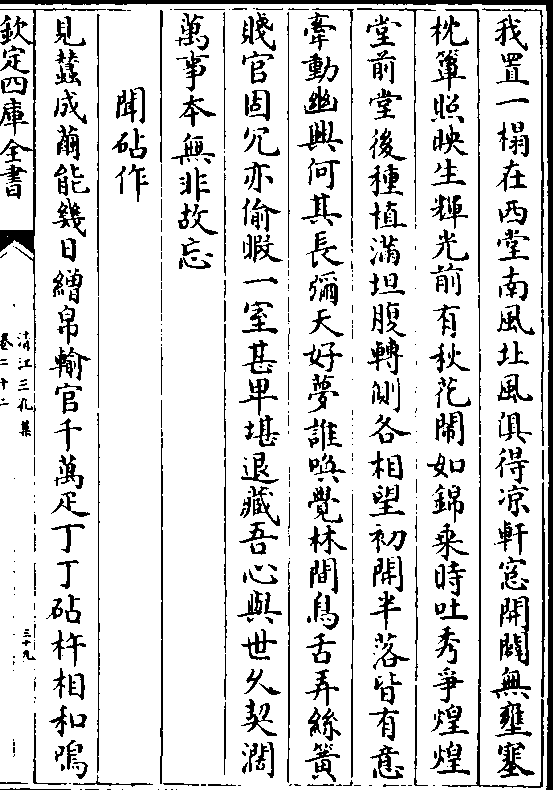 我置一榻在西堂南風北風俱得凉軒窓開闢無壅塞
枕簟照映生輝光前有秋花閙如錦乘時吐秀爭煌煌
堂前堂後種植滿坦腹轉側各相望初開半落皆有意
牽動幽興何其長彌天好夢誰喚覺林間鳥舌弄絲簧
賤官固冗亦偷暇一室甚卑堪退藏吾心與世久契濶
萬事本無非故忘
聞砧作
見蠶成繭能幾日繒帛輸官千萬疋丁丁砧杵相和鳴
欽定四庫全書
清江三孔集
卷二十二
三十九